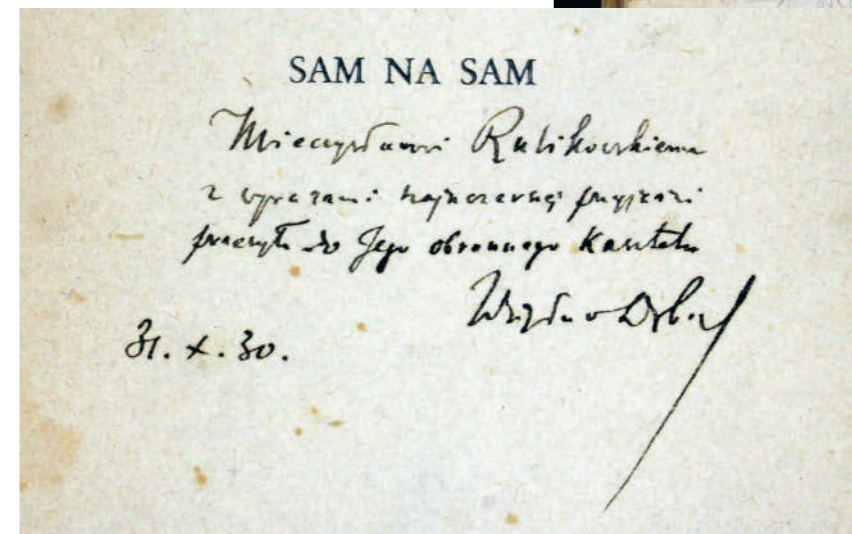 SAM NA SAM
Mieczysławowi Rulikowskiemu
z wyrazami najszczerszej przyjaźni
przesyła do Jego obronnego Kasztelu
31. X. 30.